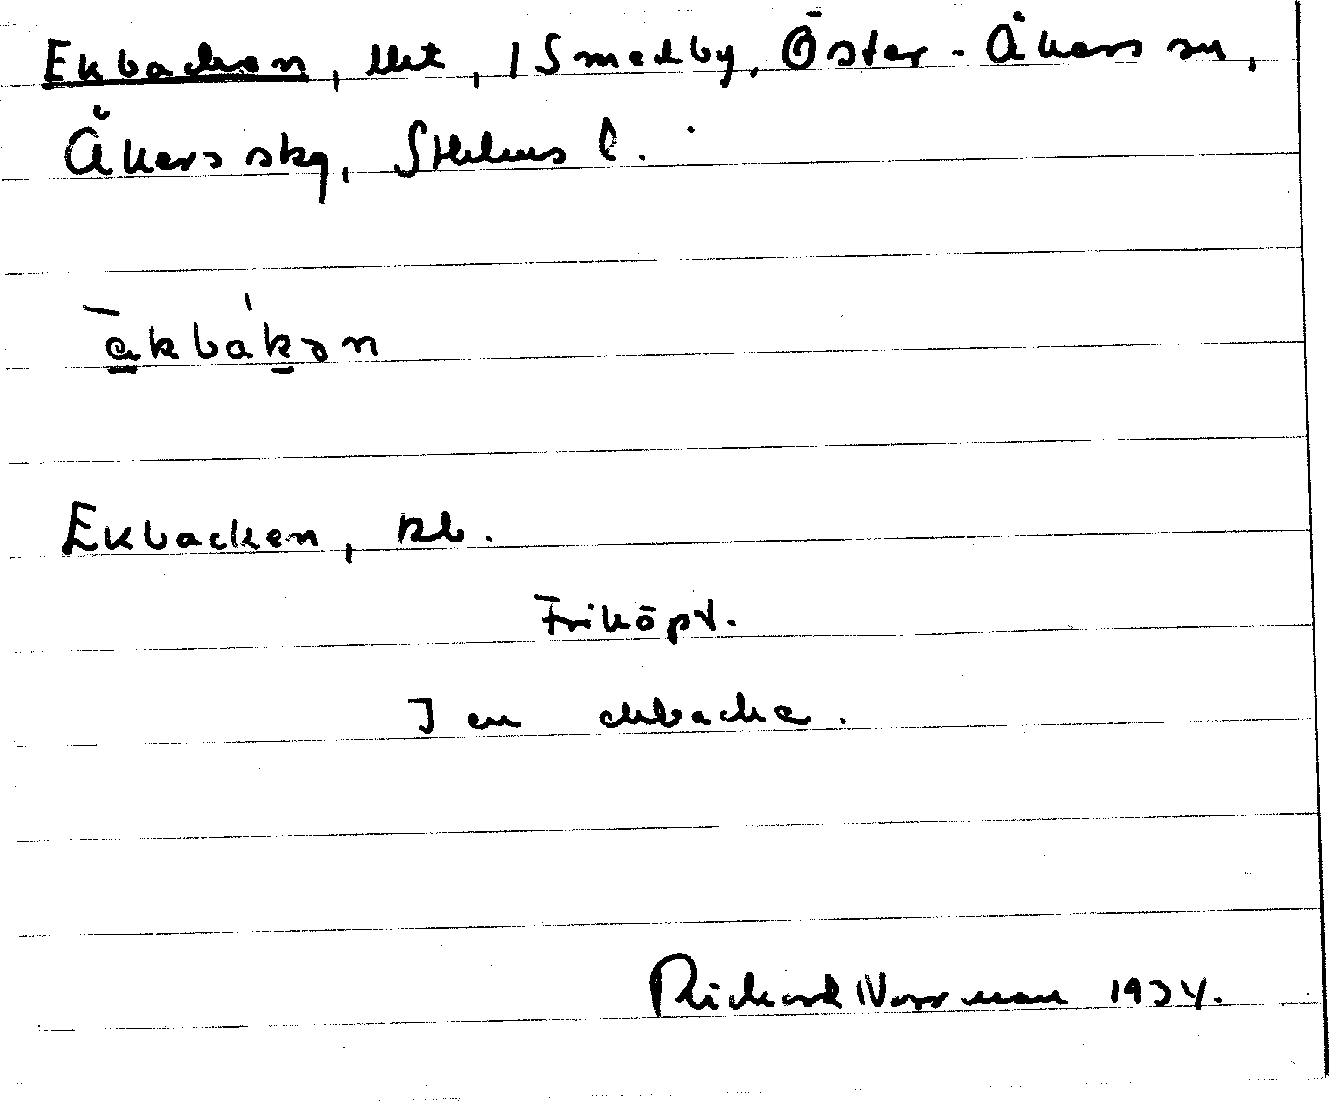 Ekbacken, lht, i Smedby, Öster-Åkers sn,
Åkers skg, Sthlms l.
ekbakən
Ekbacken, kb.
Friköpt.
I en ekbacke.
Rickard Norrman 1934.